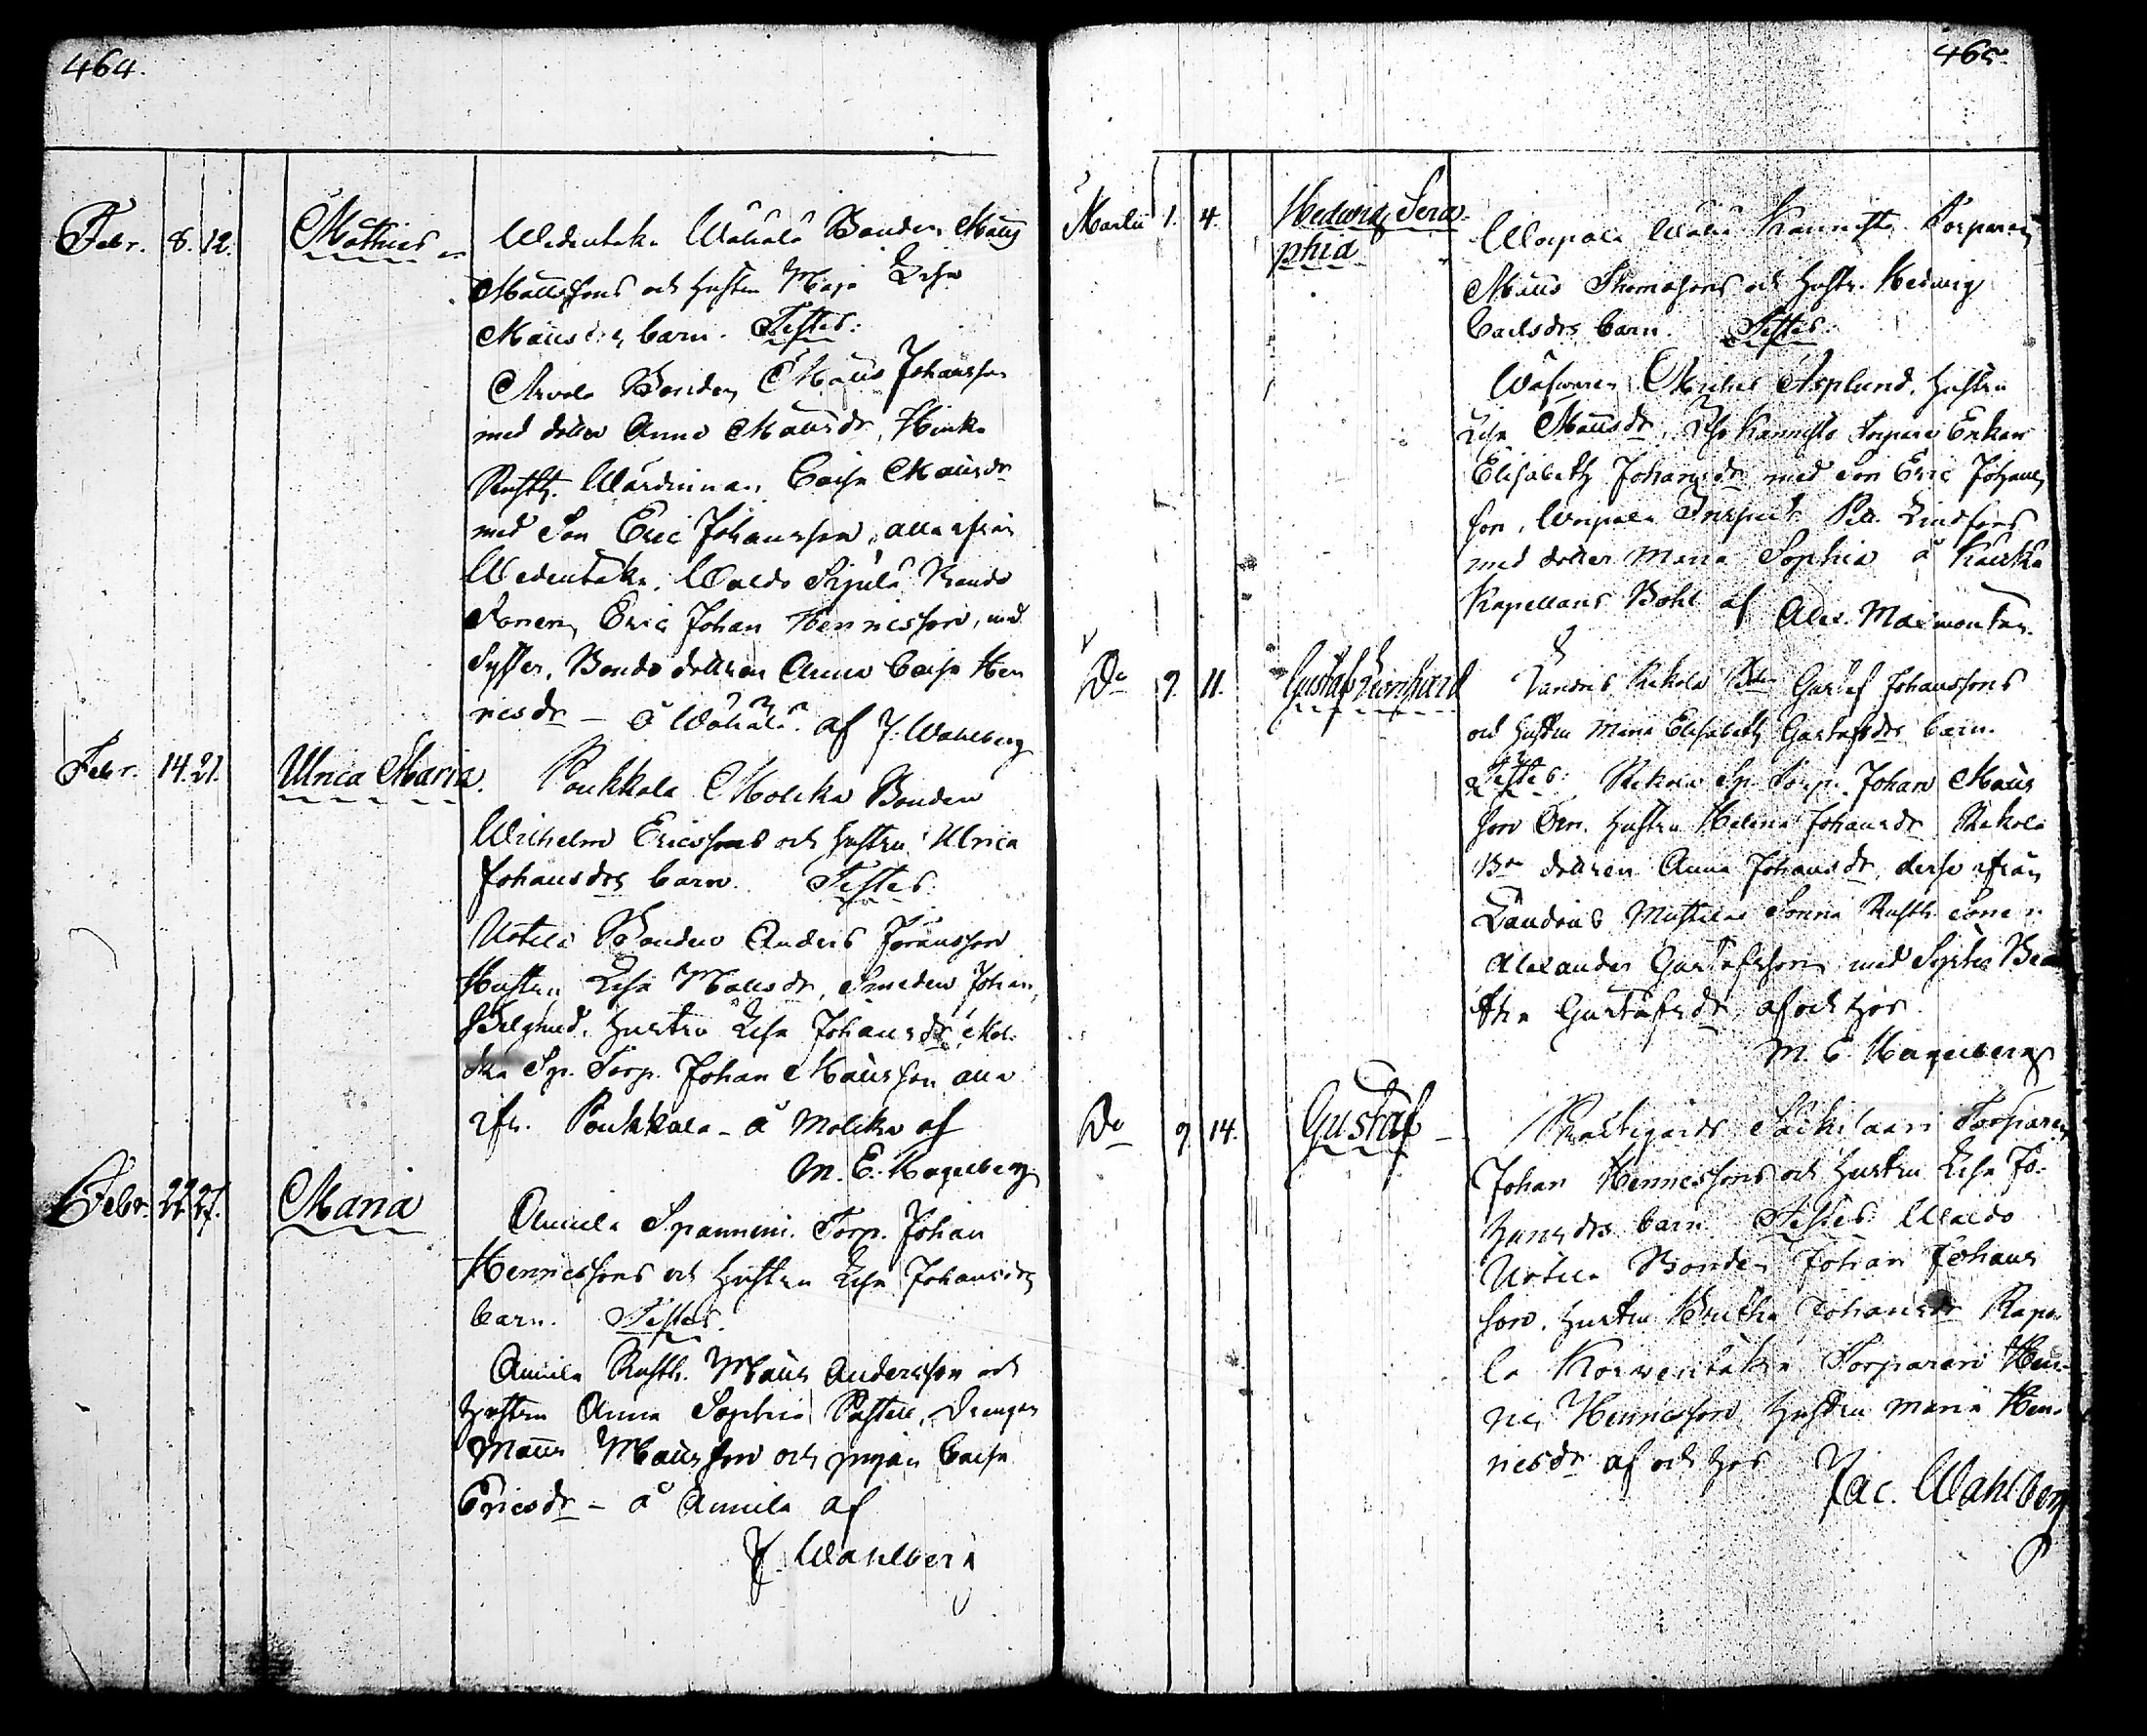 464.
Febr. 8. 12. Mathias Wedentaka Wähälä Bonden Matts
Mattssons och hustru Maja Lisa
Mattsdrs barn. Testes:
Arvela Bonden Matts Johansson
med dotter Anna Mattsdr, Hinka
Rusth. Wärdinnan Caisa Mattsdr
med Son Eric Johansson, alla ifrån
Wedentaka, Waldo Sipilä Bonde
Sonen, Eric Johan Henricsson, med
Syster, Bonde dottren Anna Caisa Hen
ricsdr – å Wähälä af J. Wahlberg
Febr. 14. 21. Ulrica Maria. Poukkala Molika Bonden
Wilhelm Ericssons och hustru Ulrica
Johansdrs barn. Testes:
Uotila Bonden Anders Jöransson
Hustru Lisa Mattsdr, Smeden Johan
hustru Lisa Johansdr, Mol.
ika Sp. Torp. Johan Mattsson alla
ifr. Poukkala – å Molika af
M. E. Hagelberg
Febr. 22. 27. Maria Annila Spannini. Torp. Johan
Henricssons och Hustru Lisa Johansdrs
barn. Testes.
Annila Rusth. Matts Andersson och
hustru Anna Sophia Drengen
Matts Mattsson och pigan Caisa
Ericsdr – å Annila af
J. Wahlberg
465.
Martii 1. 4. Hedwig Sera-
phia Worpala Kannisto Torparen
Matts Thomassons och hustr. Hedwig
Carlsdrs barn. Testes:
Michel Asplund, hustru
Lisa Mattsdr, Kannisto Torpare Enkan
Elisabeth Johansdr med Son Eric Johans
son, Worpala Inspect. Lindfors
med dotter Maria Sophia å Kauko
Kapellans Bohl af Alex. Malmonten.
Do 9. 11. Gustaf Leonhard Rekola Bdn Gustaf Johanssons
och hustru Maria Elisabeth Gustafsdrs barn.
Testes: Rekola Sp. Torp. Johan Matts
son hustru Helena Johansdr Rekola
Bde dottren Anna Johansdr, desse ifrån
Rusth. sonen
Alexander Gustafsson med Syster Bea
ta Gustafsdr, af och hos
M. E. Hagelberg
Do 9 14. Gustaf Prästgårds Säckilaari Torparen
Johan Henricssons och hustru Lisa Jo-
hansdrs barn Testes: Waldo
Uotila Bonden Johan Johans
son, hustru Britha Johansdr Rapa
la Korwentaka Torparen Hen-
ric Henricsson hustru Maria Hen-
ricsdr af och hos
Jac. Wahlberg